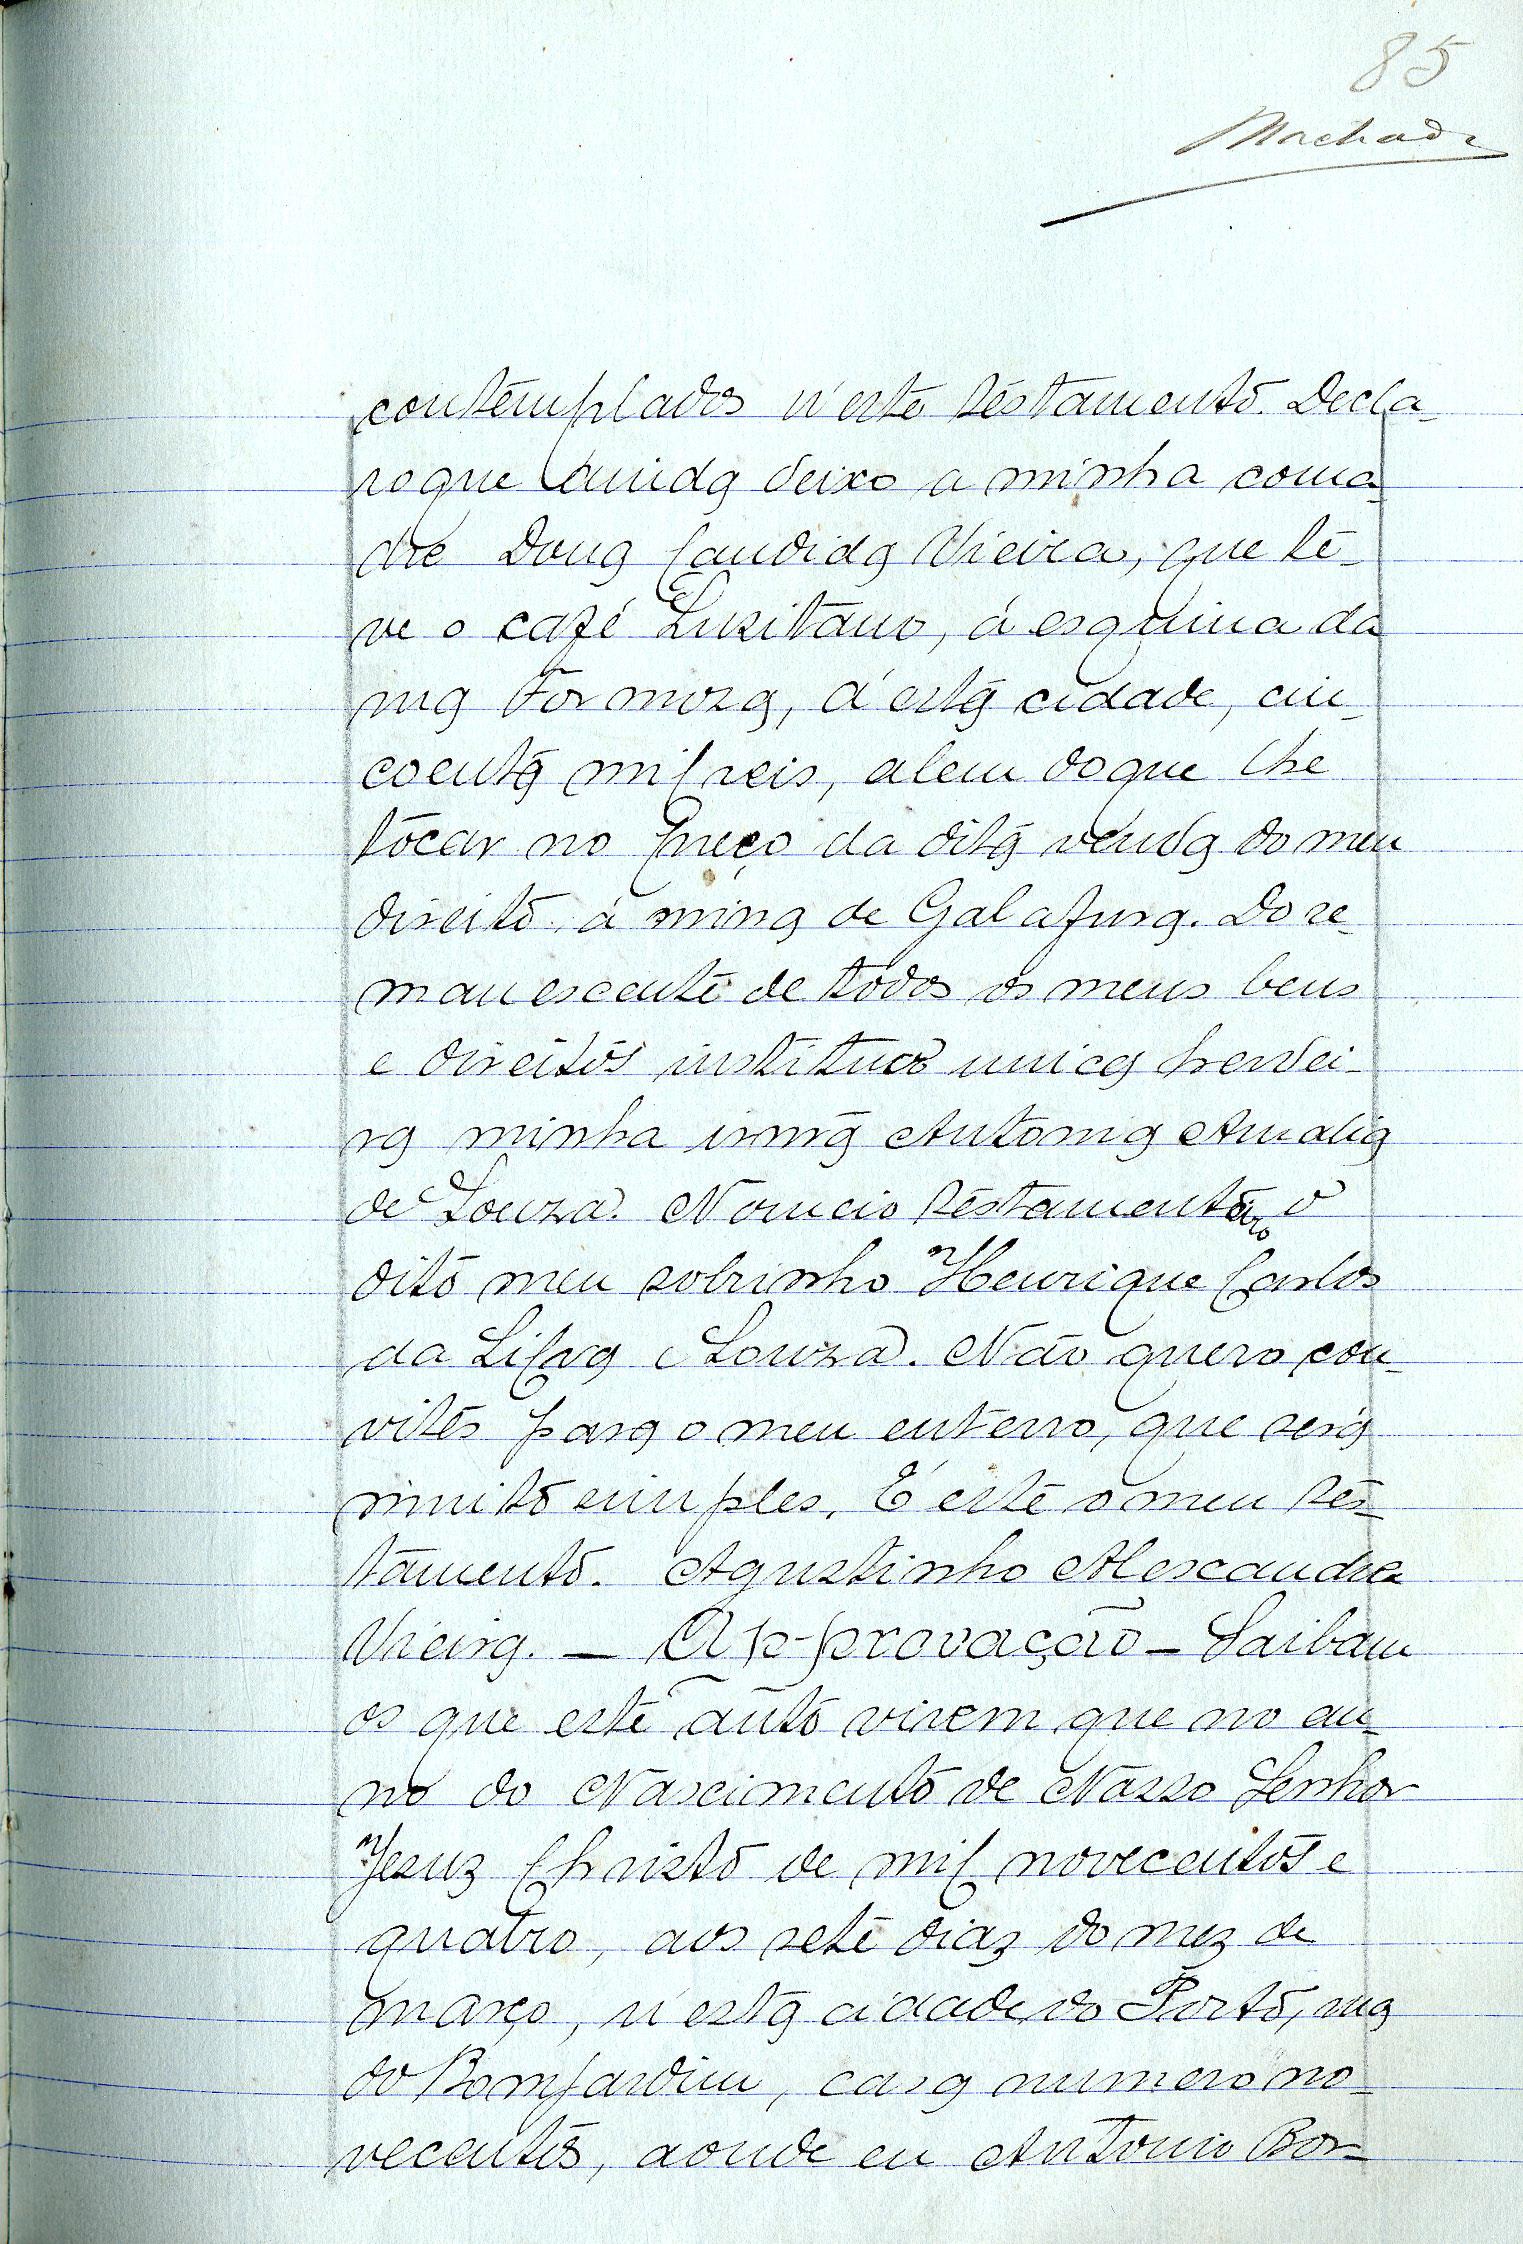 85
Machado
contemplados n'este testamento. Decla-
ro que ainda deixo a minha coma-
dre Dona Candida Vieira, que te-
ve o café Lusitano, á esquina da
rua Formosa, d'esta cidade, cin-
coenta mil reis, alem do que lhe
tocar no preço da dita venda do meu
direito á mina de Galafura. Do re-
manescente de todos os meus bens
e direitos instituo unica herdei-
ra minha irmã Antonia Amalia
de Souza. Nomeio testamenteiro o
dito meu sobrinho Henrique Carlos
da Silva Souza. Não quero con-
vites para o meu enterro, que será
muito simples. É este o meu tes-
tamento. Agustinho Alexandre
Vieira. — Approvação — Saibam
os que este auto virem que no an-
no do Nascimento de Nosso Senhor
Jesus Christo de mil novecentos e
quatro, aos sete dias do mez de
março, n'esta cidade do Porto, rua
do Bomjardim, casa numero no-
vecentos, aonde eu Antonio Bor-